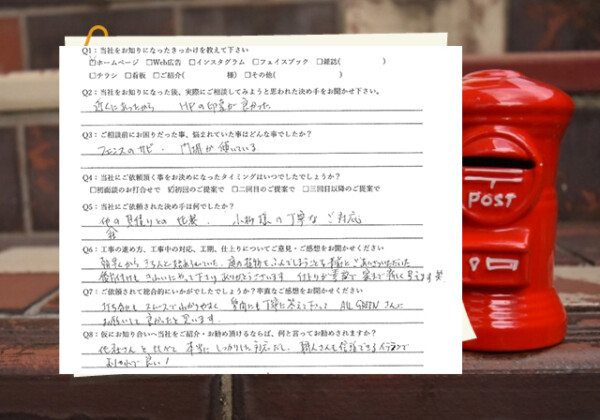 Q1：当社をお知りになったきっかけを教えて下さい
☑ホームページ □Web広告 □インスタグラム □フェイスブック □雑誌( )
□チラシ □看板 □ご紹介( 様) □その他( )
Q2：当社をお知りになった後、実際にご相談してみようと思われた決め手をお聞かせ下さい。
近くにあったから HPの印象が良かった
Q3：ご相談前にお困りだった事、悩まれていた事はどんな事でしたか？
フェンスのサビ・門塀が傾いている
Q4：当社にご依頼頂く事をお決めになったタイミングはいつでしたでしょうか？
□初面談のお打合せで ☑初回のご提案で □二回目のご提案で □三回目以降のご提案で
Q5：当社にご依頼された決め手は何でしたか？
他の見積りとの比較・小柳様の丁寧なご対応
Q6：工事の進め方、工事中の対応、工期、仕上りについてご意見・ご感想をお聞かせください
後片付けも きれいにやって下さり ありがとうございます
Q7：ご依頼されて総合的にいかがでしたでしょうか？率直なご感想をお聞かせください
打ち合せも スムーズで わかりやすく 質問にも丁寧に答えて下さって ALL GREENさんに
お願いして 良かったと思います。
Q8：仮にお知り合いへ当社をご紹介・お勧め頂けるならば、何と言ってお勧めされますか？
他社さんと比べて 本当に しっかりした対応だし、職人さんも信頼できる
おしゃれで良い！
POST